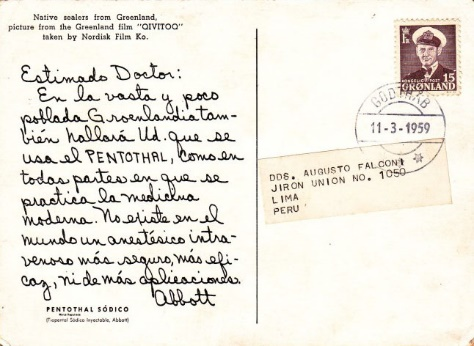 Native sealers from Greenland,
picture from the Greenland film "QIVITOQ"
taken by Nordisk Film Ko.
Estimado Doctor:
En la vasta y poco
poblada Groenlandia tam-
bién hallará Ud. que se
usa el PENTOTHAL, como en
todas partes en que se
practica la medicina
moderna. No existe en el
mundo un anestésico intra-
venoso más seguro, más efi-
caz, ni de más aplicaciones.
Abbott
PENTOTHAL SÓDICO
(Tiopental Sódico Inyectable, Abbott)
15
GRØNLAND
GODTHÅB
11-3-1959
DDS. AUGUSTO FALCONI
JIRON UNION NO. 1050
LIMA
PERU